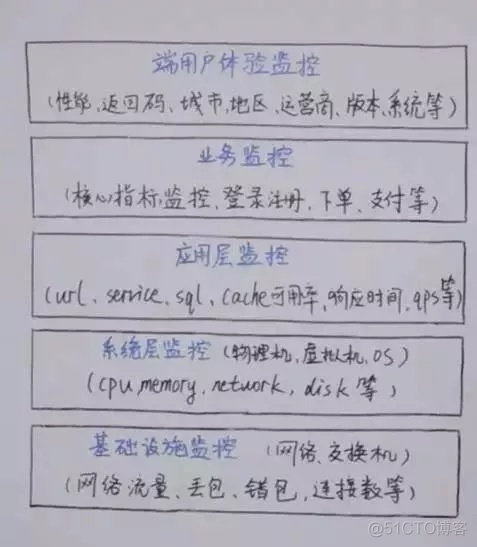 端用户体验监控
(性能、返回码、城市、地区、运营商、版本、系统等)
业务监控
(核心指标监控、登录注册、下单、支付等)
应用层监控
(url、service、sql、cache可用率、响应时间、qps等)
系统层监控(物理机、虚拟机、OS)
(cpu、memory、network、disk等)
基础设施监控 (网络、交换机)
(网络流量、丢包、错包、连接数等)
@51CTO博客